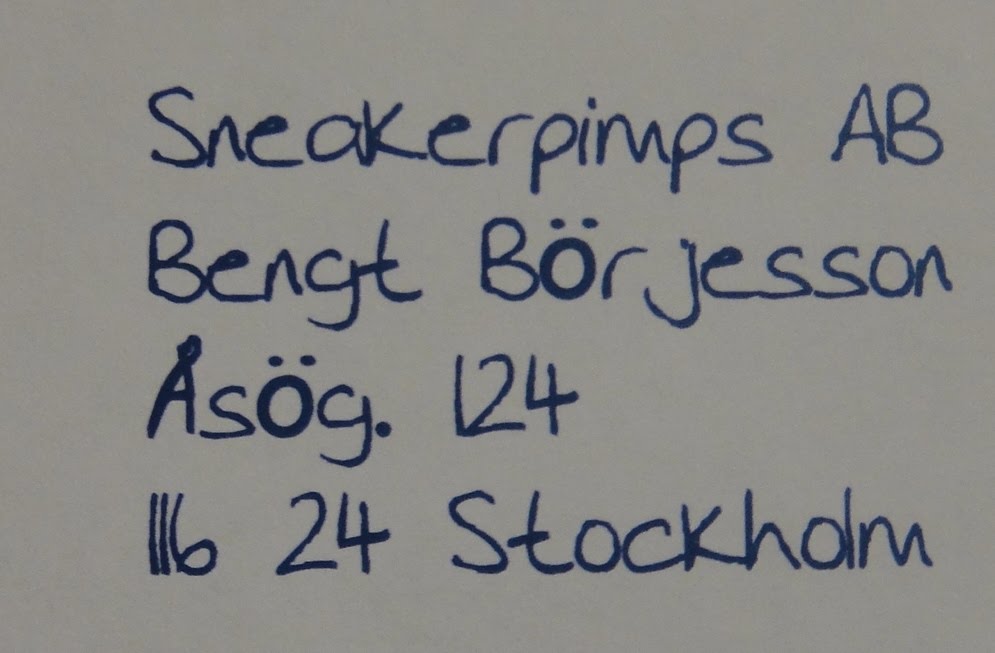 Sneakerpimps AB
Bengt Börjesson
Åsög. 124
116 24 Stockholm